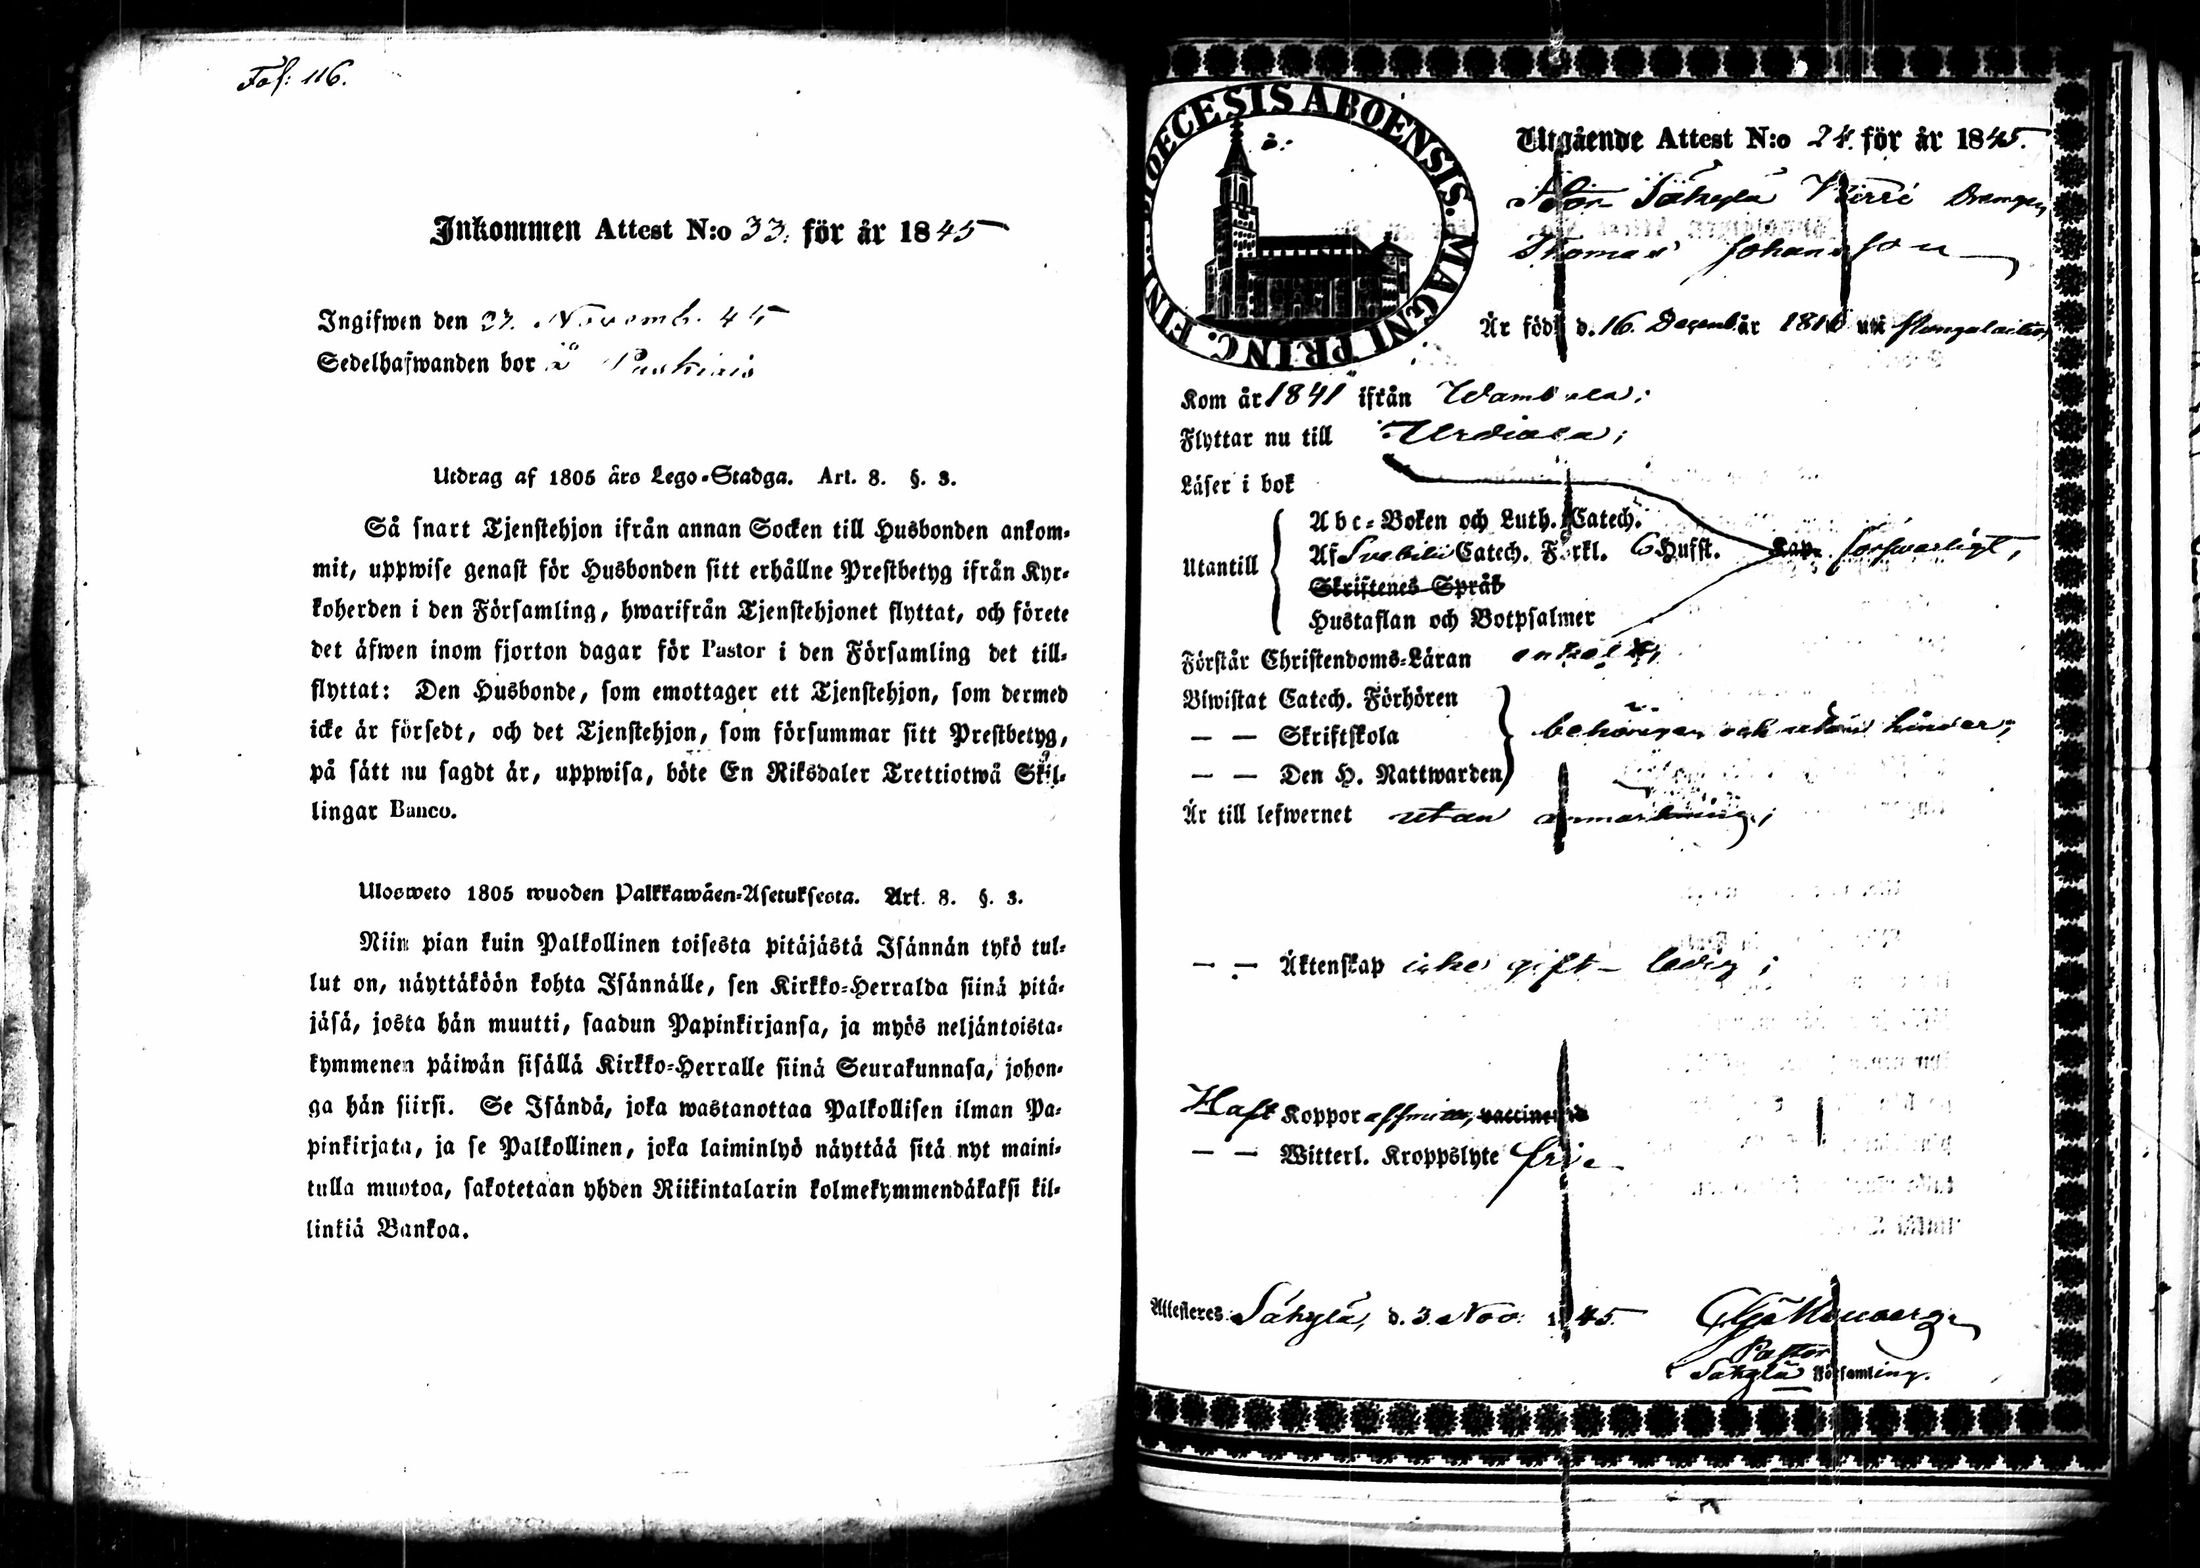 Fol: 116.
Inkommen Attest N:o 33. för år 1845
Ingifwen den 27. Novemb. 45
Sedelhafwanden bor å
Utdrag af 1805 års Lego-Stadga. Art. 8. §. 3.
Så snart Tjenstehjon ifrån annan Socken till Husbonden ankom-
mit, uppwise genast för Husbonden sitt erhållne Prestbetyg ifrån Kyr-
koherden i den Församling, hwarifrån Tjenstehjonet flyttat, och förete
det äfwen inom fjorton dagar för Pastor i den Församling det till-
flyttat: Den Husbonde, som emottager ett Tjenstehjon, som dermed
icke är försedt, och det Tjenstehjon, som försummar sitt Prestbetyg,
på sätt nu sagdt är, uppwisa, böte En Riksdaler Trettiotwå Skil-
lingar Banco.
Ulosweto 1805 wuoden Palkkawäen-Asetuksesta. Art. 8. §. 3.
Niin pian kuin Palkollinen toisesta pitäjästä Isännän tykö tul-
lut on, näyttäköön kohta Isännälle, sen Kirkko-Herralda siinä pitä-
jäsä, josta hän muutti, saadun Papinkirjansa, ja myös neljäntoista-
kymmenen päiwän sisällä Kirkko-Herralle siinä Seurakunnasa, johon-
ga hän siirsi. Se Isändä, joka wastanottaa Palkollisen ilman Pa-
pinkirjata, ja se Palkollinen, joka laiminlyö näyttää sitä nyt maini-
tulla muotoa, sakotetaan yhden Riikintalarin kolmekymmendäkaksi kil-
linkiä Bankoa.
DIOECESIS ABOENSIS. MAGNI PRINC. FINL.
Utgående Attest N:o 24. för år 1845.
Säkylä Drengen
Thomas Johansson
Är född d. 16. Decemb år 181 uti
Kom år 1841 ifrån Wambula;
Flyttar nu till Urdiala;
Läser i bok
Abc-Boken och Luth. Catech.
Utantill Af Svebilii Catech. Förkl. 6 Hufst. Kap. forswarligt,
Skriftenes Språk
Hustaflan och Botpsalmer
Förstår Christendoms-Läran enkelt,
Biwistat Catech. Förhören
— — Skriftskola behörigen och utan hinder;
— — Den H. Nattwarden
Är till lefwernet utan anmärkning;
— — Äktenskap icke gift – ledig;
Haft Koppor vaccinerad
— — Witterl. Kroppslyte fri
Attesteras: Säkylä, d. 3. Nov. 1845.
Pastor
Säkylä Församling.